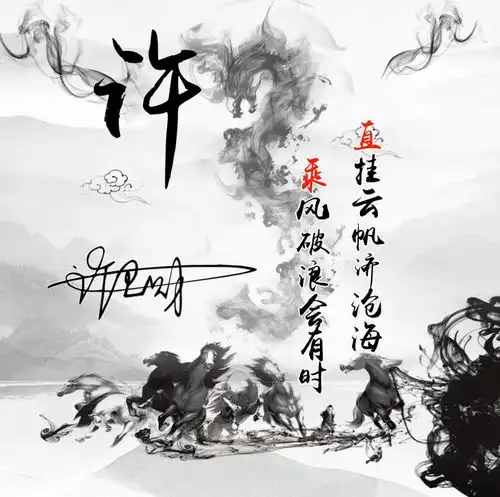 许
直挂云帆济沧海
乘风破浪会有时